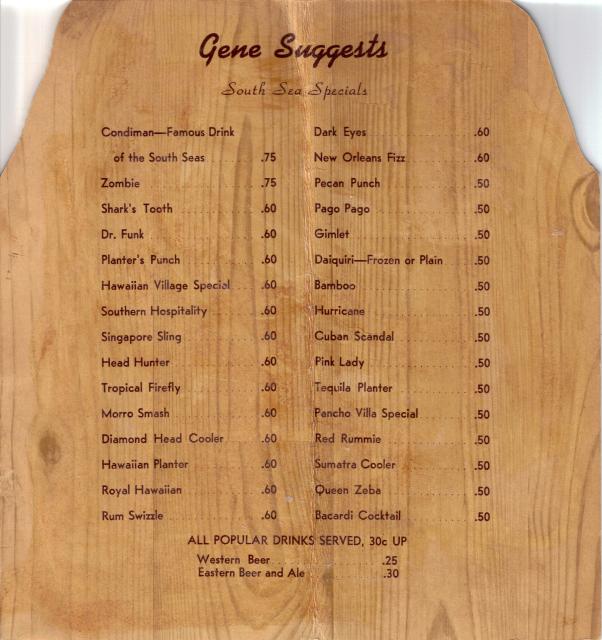 Gene Suggests
South Sea Specials
Condiman—Famous Drink
of the South Seas .75
Zombie .75
Shark's Tooth .60
Dr. Funk .60
Planter's Punch .60
Hawaiian Village Special .60
Southern Hospitality .60
Singapore Sling .60
Head Hunter .60
Tropical Firefly .60
Morro Smash .60
Diamond Head Cooler .60
Hawaiian Planter .60
Royal Hawaiian .60
Rum Swizzle .60
Dark Eyes .60
New Orleans Fizz .60
Pecan Punch .50
Pago Pago .50
Gimlet .50
Daiquiri—Frozen or Plain .50
Bamboo .50
Hurricane .50
Cuban Scandal .50
Pink Lady .50
Tequila Planter .50
Pancho Villa Special .50
Red Rummie .50
Sumatra Cooler .50
Queen Zeba .50
Bacardi Cocktail .50
ALL POPULAR DRINKS SERVED, 30c UP
Western Beer .25
Eastern Beer and Ale .30